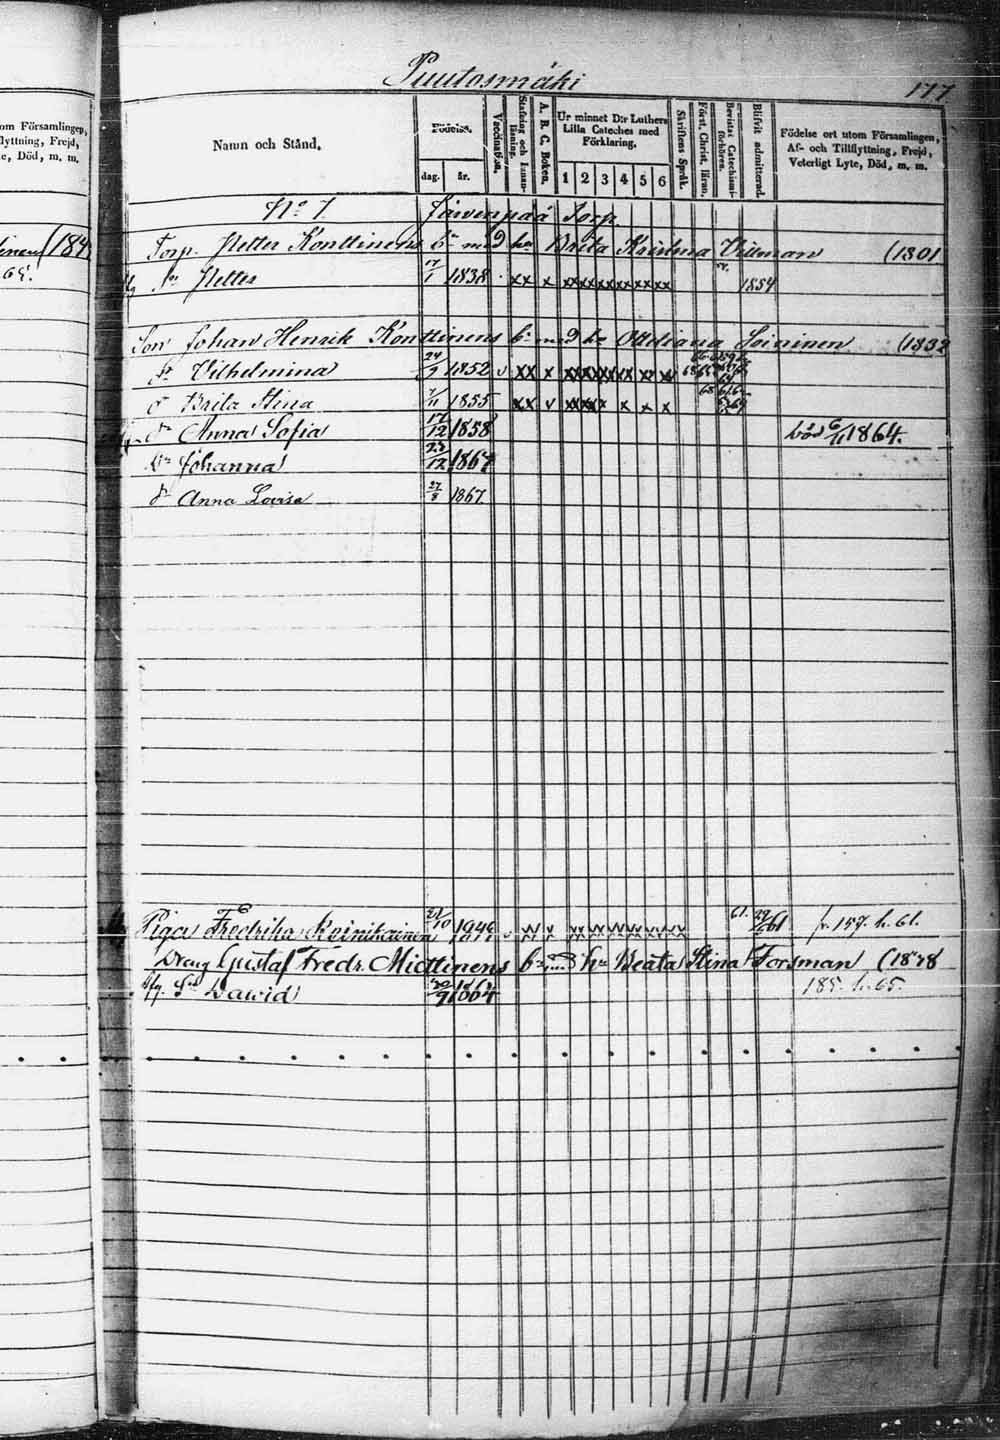 Puutosmäki
177
om Församlingen,
lyttning, Frejd,
te, Död, m. m.
Namn och Stånd.
Födelse.
dag. år.
Vaccination.
Stafning och Innan-läsning.
A. B. C. Boken.
Ur minnet D:r Luthers Lilla Cateches med Förklaring.
1 2 3 4 5 6
Skriftens Språk.
Först. Christ. läran.
Bevistat Catechismi-förhören.
Blifvit admitterad.
Födelse ort utom Församlingen, Af- och Tillflyttning, Frejd, Veterligt Lyte, Död, m. m.
No 7. Järvenpää Torp.
Torp. Petter Konttinens bn med ho Brita Kristina Villman (1801
Sn Petter 17/1 1838 · xx x xx xx xx xx xx xx 1854
Son Johan Henrik Konttinens bn med ho Ottiliana Soininen (1832
dr Vilhelmina 24/9 1852 v xx x
dr Brita Stina 7/11 1855 xx v
dr Anna Sofia 17/12 1858 död 6/11 1864.
dr Johanna 23/12 1864
dr Anna Lovisa 27/8 1867
Piga Fredrika Keinikainen 21/10 61. 61 fr 159. h. 61.
Dräng Gustaf Fredr. Miettinens bn med ho Beata Stina Forsman (1838
Sn Dawid 1864 185. h. 65.